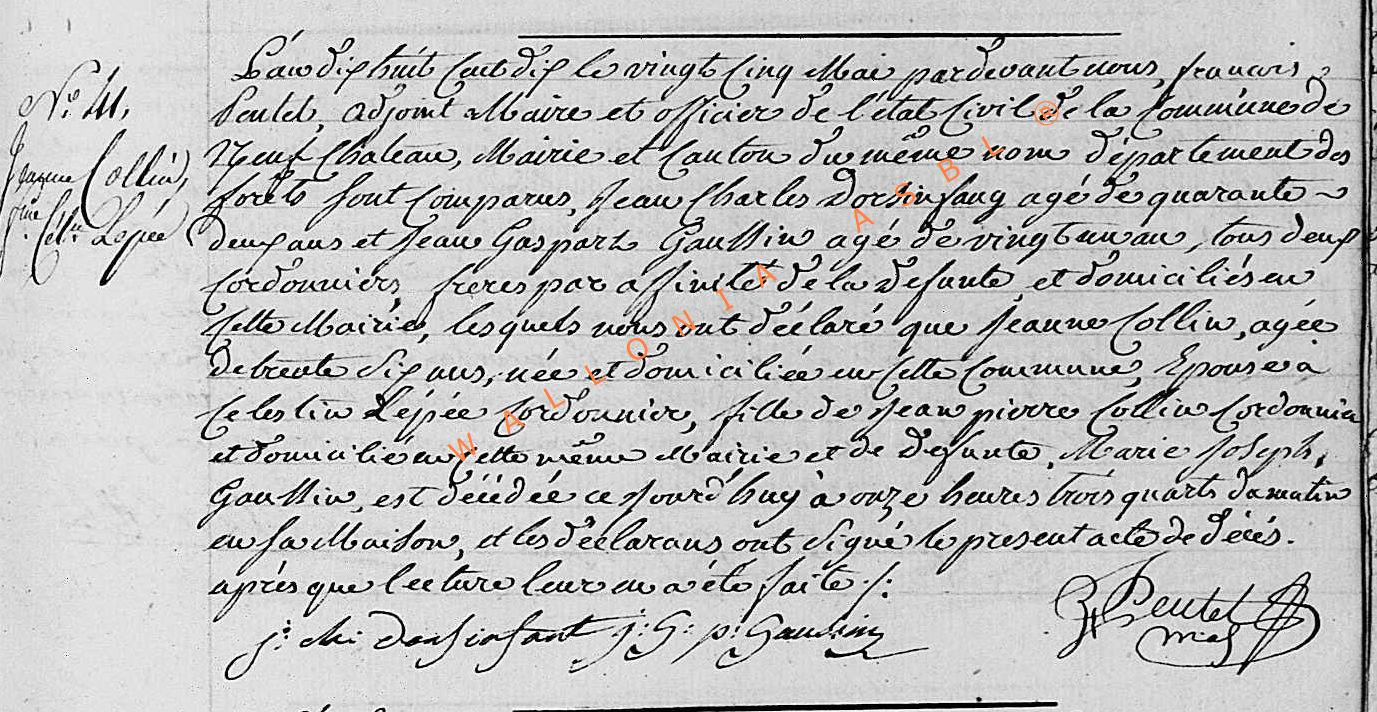 L'an dix huit Cent dix le vingt Cinq Mai pardevant nous, françois
Pentel, adjoint Maire et officier de l'état Civil de la Commune de
Neuf Chateau, Mairie et Canton du même nom département des
forêts sont comparus, Jean Charles agé de quarante
deux ans et Jean Gaspart Gaussin agé de vingt un an, tous deux
Cordonniers, freres par affinité de la defunte, et domiciliés en
cette Mairie, lesquels nous ont déclaré que Jeanne Collin, agée
de trente Six ans, née et domiciliée en Cette Commune, Epouse à
Celestin Lépée Cordonnier, fille de Jean pierre Collin Cordonnier
et domicilié en Cette même Mairie et de defunte, Marie Joseph,
Gaussin, est décédée ce Jourd'huy à onze heures trois quarts du matin
en sa Maison, et les déclarans ont Signé le present acte de décés.
après que lecture leur en a été faite ./.
j: ch: j: G: p: Gaussin
Pentel
N.o 41.
Jeanne Collin,
f.me Cél.n Lépée
WALLONIA ASBL ®